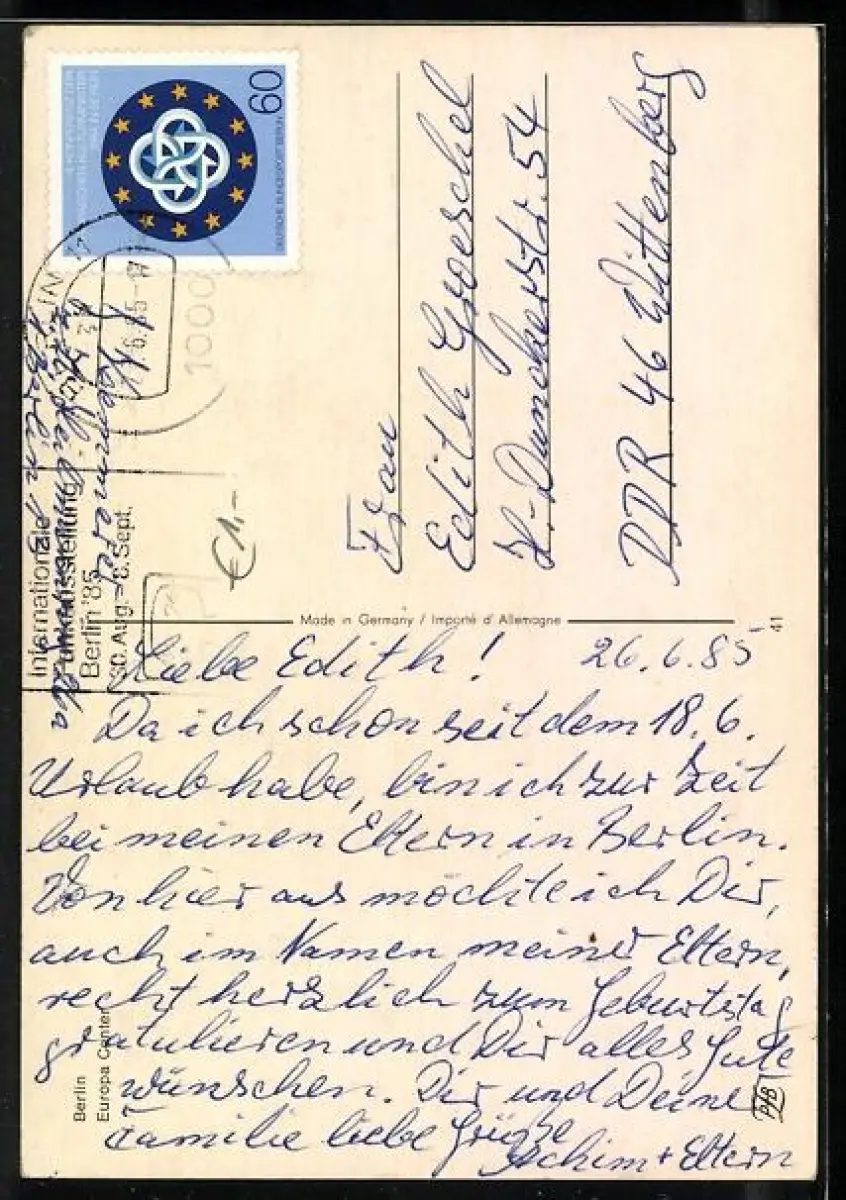 60
DEUTSCHE BUNDESPOST
1000
BERLIN 11
.6.85
Internationale
Funkausstellung
Berlin '85
30. Aug. – 8. Sept.
1 Berlin 19
€ 1,-
Frau
Edith Groeschel
H.-Dunckerstr. 54
DDR 46 Wittenberg
Made in Germany / Importé d'Allemagne
41
Liebe Edith! 26.6.85
Da ich schon seit dem 18.6.
Urlaub habe, bin ich zur Zeit
bei meinen Eltern in Berlin.
Von hier aus möchte ich Dir,
auch im Namen meiner Eltern,
recht herzlich zum Geburtstag
gratulieren und Dir alles Gute
wünschen. Dir und Deiner
Familie liebe Grüße
Achim + Eltern
Berlin
Europa Center
PHB